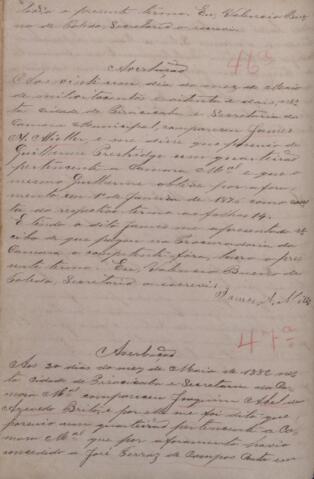 lavro o presente termo. Eu, Valencio Bueno
de Toledo, Secretario o escrevi.
46ª
Averbação
Aos vinte um dia do mez de Maio
de mil oito centos e oitenta e dois, nes
ta cidade de Piracicaba e Secretaria da
Camara Municipal, compareceu James
A. Miller e me disse que possuio de
Guilherme Prestridge um quarteirão
pertencente a Camara Mal e que o
mesmo Guilherme obteve por afora
mento em 1º de Janeiro de 1876 como cons
ta do respectivo termo as folhas 14.
E tendo o dito James me apresentado re
cibo de que pagou na Procuradoria da
Camara o competente fôro, lavro o pre
sente termo. Eu, Valencio Bueno de
Toledo, Secretario o escrevi.
James A. Miller
47ª
Averbação
Aos 30 dias do mez de Maio de 1882 nes
ta cidade de Piracicaba e Secretaria da Ca
mara Mal compareceu Joaquim Abel de
Azevedo Brito, e por elle me foi dito que
possuio um quarteirão pertencente a Ca
mara Mal que por aforamento havia
concedido a José Ferraz de Campos Couto em